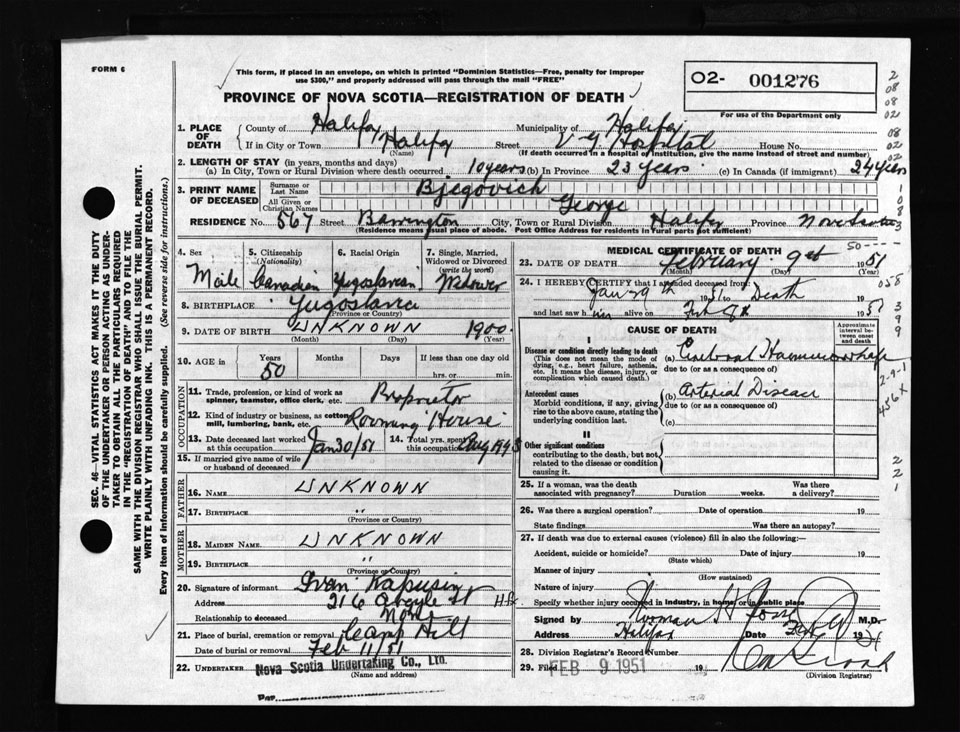 FORM 6
This form, if placed in an envelope, on which is printed "Dominion Statistics—Free, penalty for improper
use $300," and properly addressed will pass through the mail "FREE"
PROVINCE OF NOVA SCOTIA—REGISTRATION OF DEATH
O2- 001276
For use of the Department only
1. PLACE OF DEATH
County of Halifax Municipality of Halifax
If in City or Town Halifax Street V-G. Hospital House No.
(Name) (If death occurred in a hospital or institution, give the name instead of street and number)
2. LENGTH OF STAY (in years, months and days)
(a) In City, Town or Rural Division where death occurred 10 years (b) In Province 23 Years (c) In Canada (if immigrant) 24 Years
3. PRINT NAME OF DECEASED
Surname or Last Name Bjegovich
All Given or Christian Names George
RESIDENCE No. 567 Street Barrington City, Town or Rural Division Halifax Province Nova Scotia
(Residence means usual place of abode. Post Office Address for residents in Rural parts not sufficient)
4. Sex
Male
5. Citizenship
(Nationality)
Canadian
6. Racial Origin
Yugoslavian
7. Single, Married,
Widowed or Divorced
(write the word)
Widower
8. BIRTHPLACE Yugoslavia
(Province or Country)
9. DATE OF BIRTH UNKNOWN 1900
(Month) (Day) (Year)
10. AGE in Years Months Days If less than one day
50 hrs. or min.
OCCUPATION
11. Trade, profession, or kind of work as
spinner, teamster, office clerk, etc. Proprietor
12. Kind of industry or business, as cotton
mill, lumbering, bank, etc. Rooming House
13. Date deceased last worked
at this occupation Jan 30/51
14. Total yrs. spent
this occupation
15. If married give name of wife
or husband of deceased
FATHER
16. NAME UNKNOWN
17. BIRTHPLACE "
(Province or Country)
MOTHER
18. MAIDEN NAME UNKNOWN
19. BIRTHPLACE "
(Province or Country)
20. Signature of informant Ivan Kapusin
Address 216 Argyle St Hfx
Relationship to deceased None
21. Place of burial, cremation or removal Camp Hill
Date of burial or removal Feb 11/51
22. UNDERTAKER Nova Scotia Undertaking Co., Ltd.
(Name and address)
Per
MEDICAL CERTIFICATE OF DEATH
23. DATE OF DEATH February 9th 1951
(Month) (Day) (Year)
24. I HEREBY CERTIFY that I attended deceased from:
Jan 29th 1951 to Death
and last saw him alive on Feb 9th 1951
CAUSE OF DEATH
Approximate
interval be-
tween onset
and death
I
Disease or condition directly leading to death
(This does not mean the mode of
dying, e.g., heart failure, asthenia,
etc. It means the disease, injury, or
complication which caused death.)
(a) Cerebral Haemorrhage
due to (or as a consequence of)
Antecedent causes
Morbid conditions, if any, giving
rise to the above cause, stating the
underlying condition last.
(b) Arterial Disease
due to (or as a consequence of)
(c)
II
Other significant conditions
contributing to the death, but not
related to the disease or condition
causing it.
25. If a woman, was the death
associated with pregnancy? Duration weeks. Was there
a delivery?
26. Was there a surgical operation? Date of operation 19
State findings Was there an autopsy?
27. If death was due to external causes (violence) fill in also the following:—
Accident, suicide or homicide? Date of injury 19
(State which)
Manner of injury
(How sustained)
Nature of injury
Specify whether injury occurred in industry, in home, or in public place
Signed by Norman H M.D.
Address Halifax Date Feb 9 1951
28. Division Registrar's Record Number
29. Filed FEB 9 1951 19
(Division Registrar)
SEC. 46—VITAL STATISTICS ACT MAKES IT THE DUTY
OF THE UNDERTAKER OR PERSON ACTING AS UNDER-
TAKER TO OBTAIN ALL THE PARTICULARS REQUIRED
IN THE "REGISTRATION OF DEATH" AND TO FILE THE
SAME WITH THE DIVISION REGISTRAR WHO SHALL ISSUE THE BURIAL PERMIT.
WRITE PLAINLY WITH UNFADING INK. THIS IS A PERMANENT RECORD.
Every item of information should be carefully supplied. (See reverse side for instructions.)
2
08
08
02
08
02
02
1
0
8
3
50----
058
3
9
9
2-9-1
456X
2
2
1